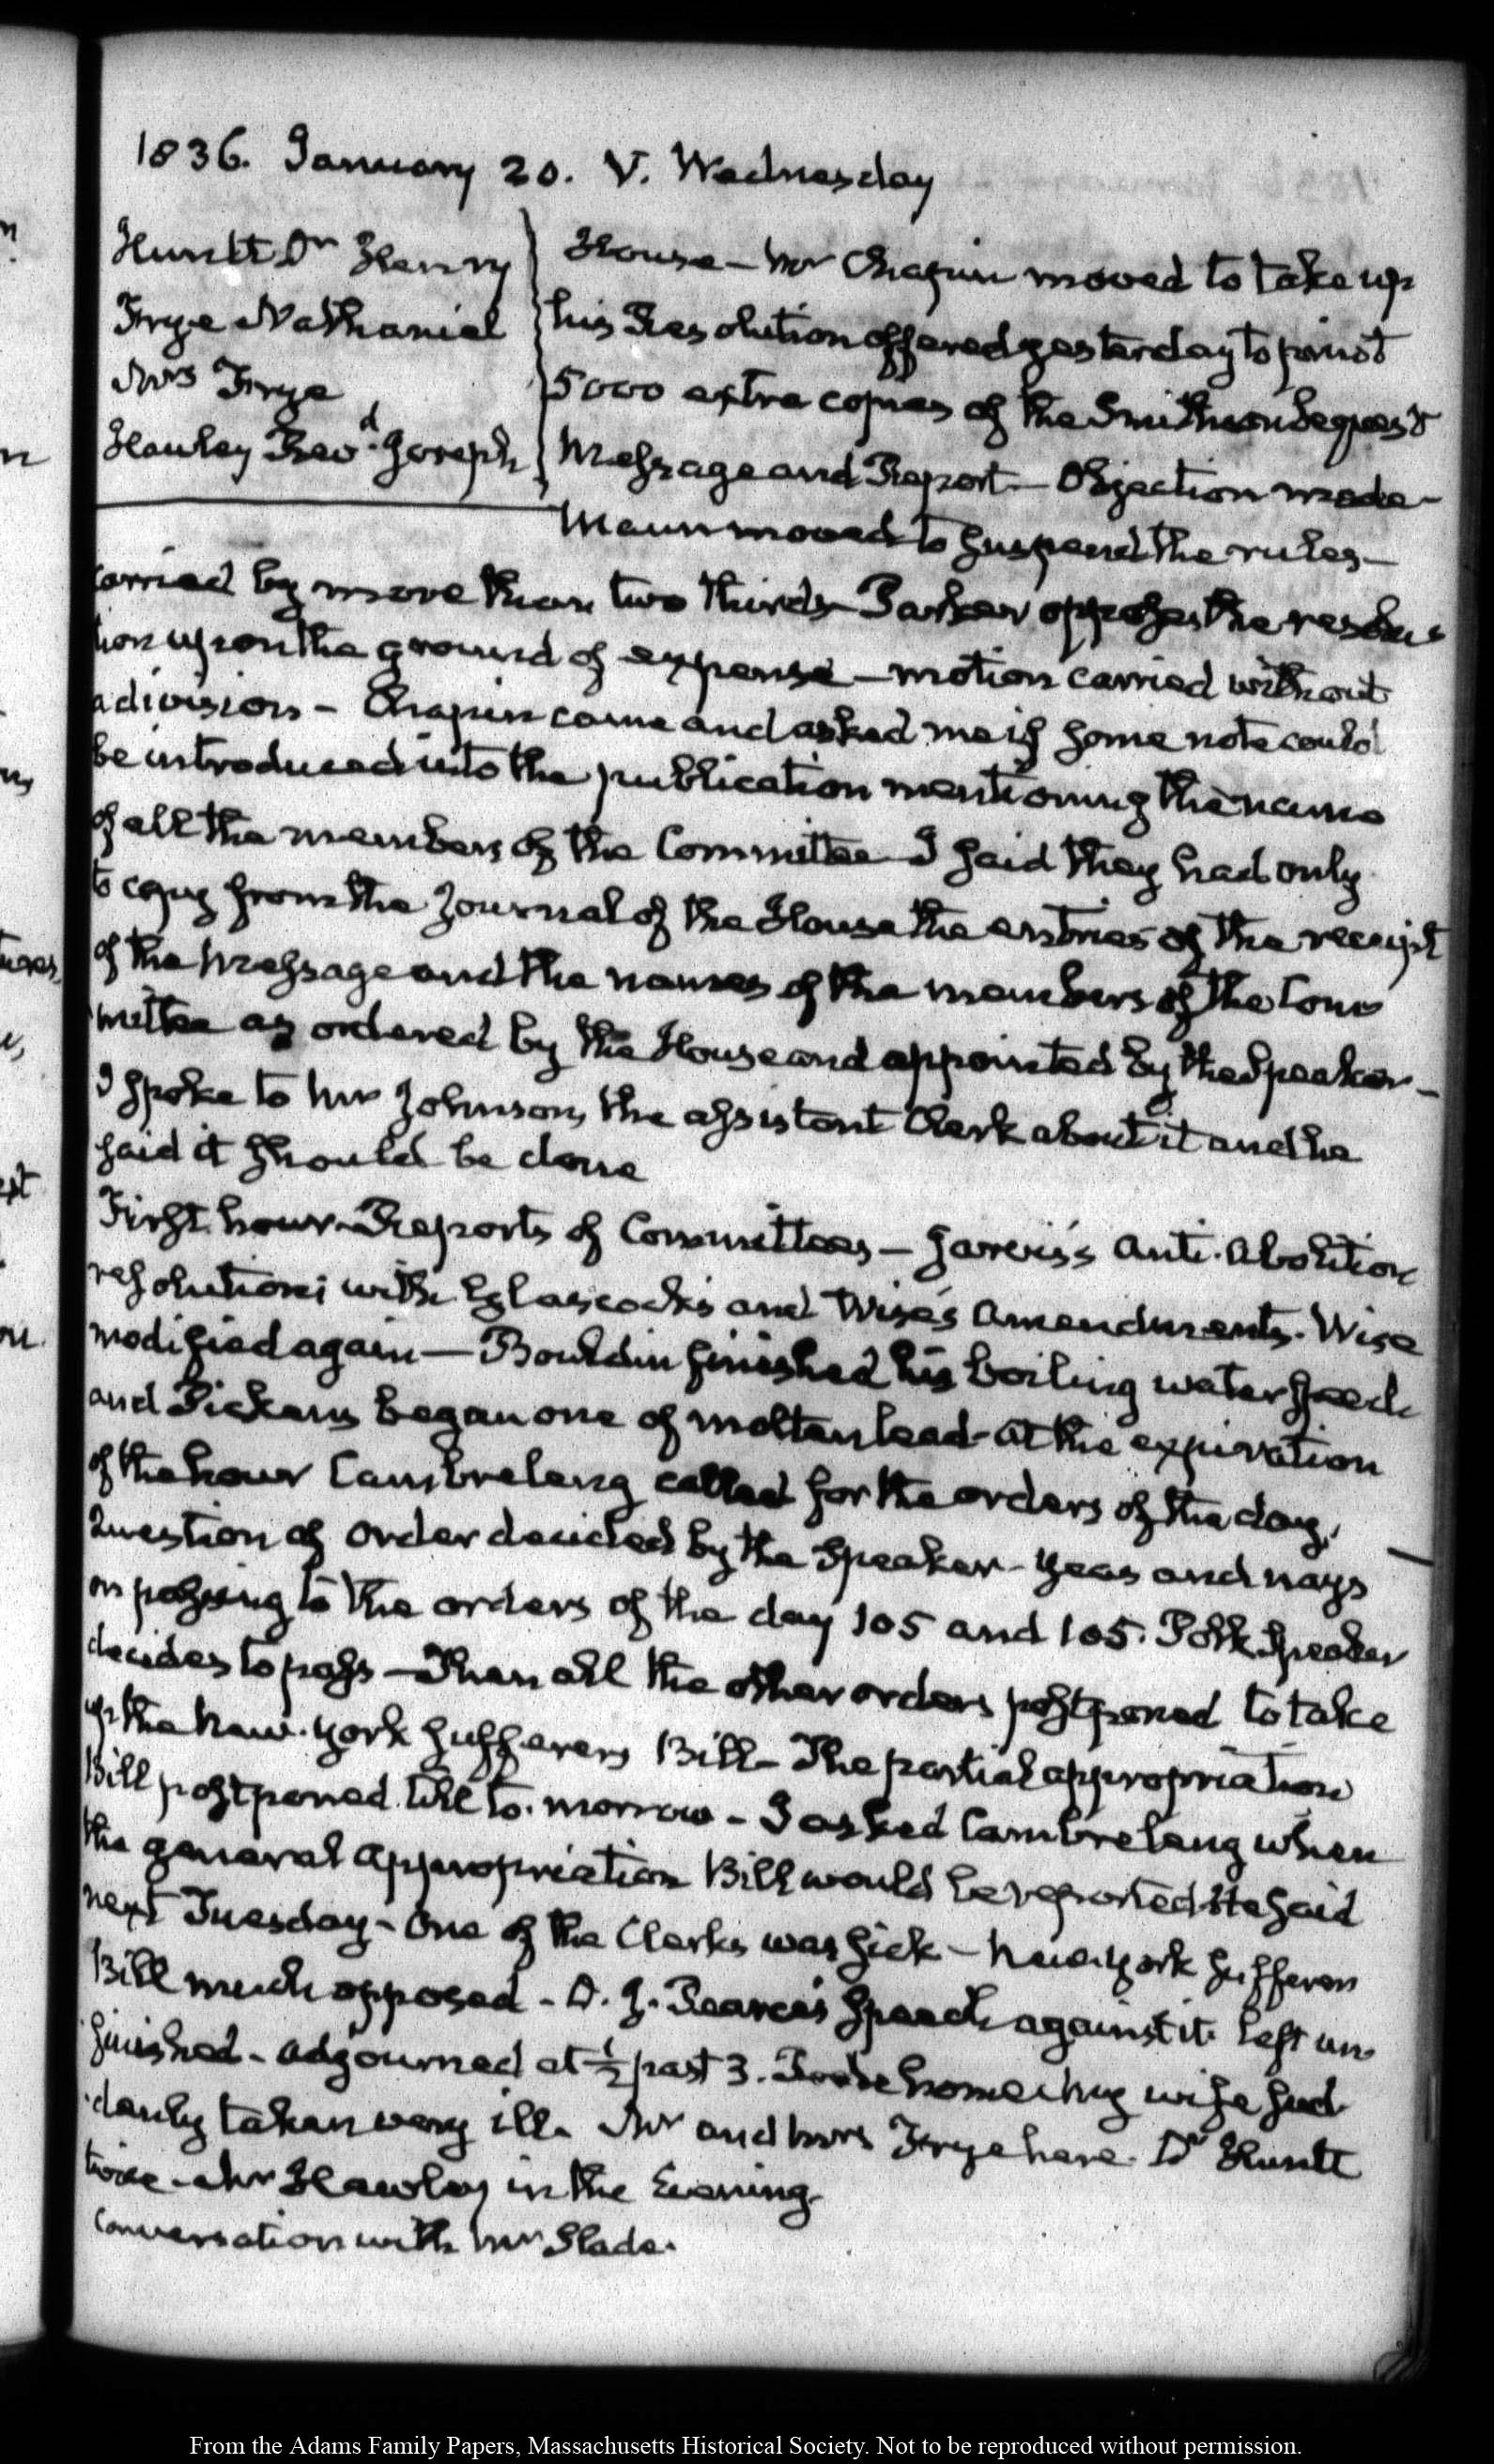 1836. January 20. V. Wednesday
Huntt Dr Henry
Frye Nathaniel
Mrs Frye
Hawley Revd. Joseph
House — Mr Chapin moved to take up
his Resolution offered yesterday to print
5000 extra copies of the Smithson bequest
Message and Report — Objection made —
Mann moved to suspend the rules —
carried by more than two thirds — Parker opposes the resolu
tion upon the ground of expense — motion carried without
a division — Chapin came and asked me if some note could
be introduced into the publication mentioning the name
of all the members of the Committee I said they had only
to copy from the Journal of the House the entries of the receipt
of the Message and the names of the members of the Com
mittee as ordered by the House and appointed by the Speaker —
I spoke to Mr Johnson, the assistant Clerk about it and he
said it should be done
First hour — Reports of Committees — Jarvis's Anti-Abolition
resolutions with Glascock's and Wise's Amendments. Wise
modified again — Bouldin finished his boiling water speech
and Pickens began one of molten lead — at the expiration
of the hour Cambreleng called for the orders of the day,
Question of order decided by the Speaker — Yeas and nays
on passing to the orders of the day 105 and 105. Polk Speaker
decides to pass — Then all the other orders postponed to take
up the New-York sufferers Bill — The partial appropriation
Bill postponed till to-morrow — I asked Cambreleng when
the general appropriation Bill would be reported — He said
next Tuesday — One of the Clerks was sick — New-York sufferers
Bill much opposed — D. J. Pearce's speech against it left un
finished — adjourned at ½ past 3. home my wife sud
denly taken very ill. Mr and Mrs Frye here. Dr Huntt
twice — Mr Hawley in the Evening
Conversation with Mr Slade.
From the Adams Family Papers, Massachusetts Historical Society. Not to be reproduced without permission.